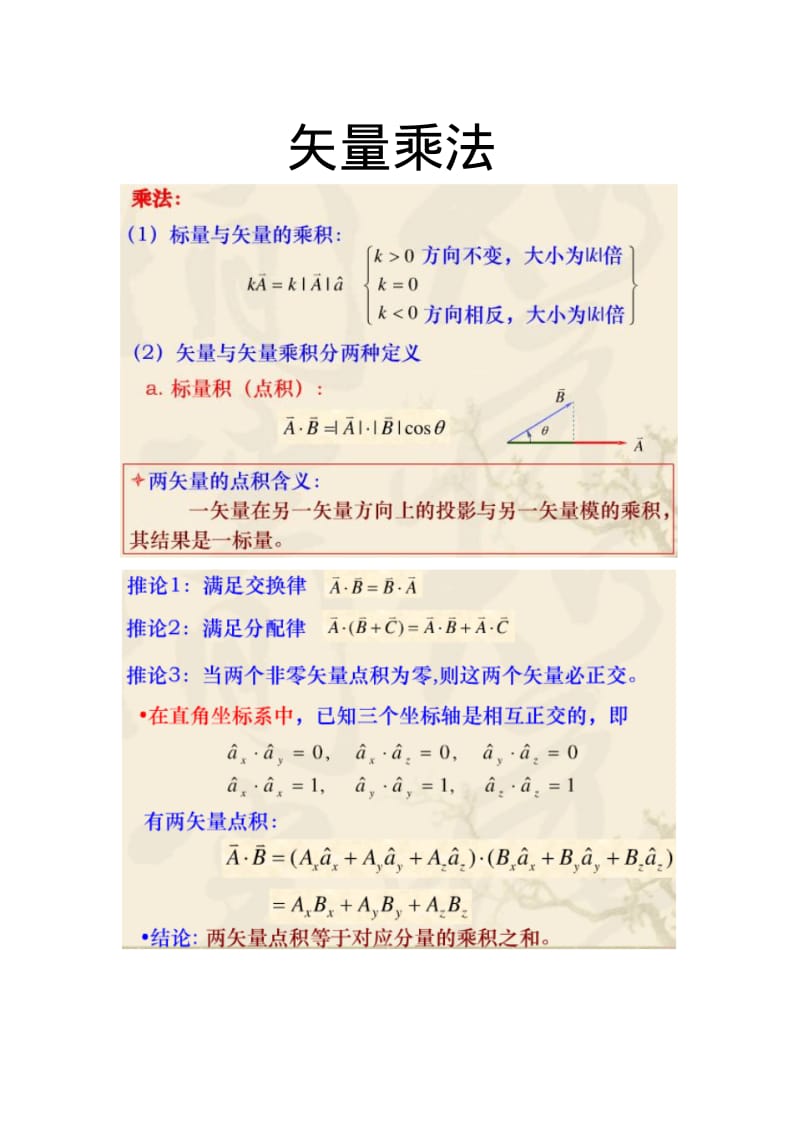 矢量乘法
乘法:
(1) 标量与矢量的乘积:
k > 0 方向不变，大小为|k|倍
kA⃗ = k | A⃗ | â
k = 0
k < 0 方向相反，大小为|k|倍
(2) 矢量与矢量乘积分两种定义
a. 标量积（点积）:
B⃗
A⃗ · B⃗ =| A⃗ | · | B⃗ | cos θ
θ
A⃗
两矢量的点积含义:
一矢量在另一矢量方向上的投影与另一矢量模的乘积，
其结果是一标量。
推论1: 满足交换律 A⃗ · B⃗ = B⃗ · A⃗
推论2: 满足分配律 A⃗ · (B⃗ + C⃗) = A⃗ · B⃗ + A⃗ · C⃗
推论3: 当两个非零矢量点积为零,则这两个矢量必正交。
•在直角坐标系中，已知三个坐标轴是相互正交的，即
âₓ · â_y = 0, âₓ · â_z = 0, â_y · â_z = 0
âₓ · âₓ = 1, â_y · â_y = 1, â_z · â_z = 1
有两矢量点积:
A⃗ · B⃗ = (Aₓâₓ + A_yâ_y + A_zâ_z) · (Bₓâₓ + B_yâ_y + B_zâ_z)
= AₓBₓ + A_yB_y + A_zB_z
•结论: 两矢量点积等于对应分量的乘积之和。